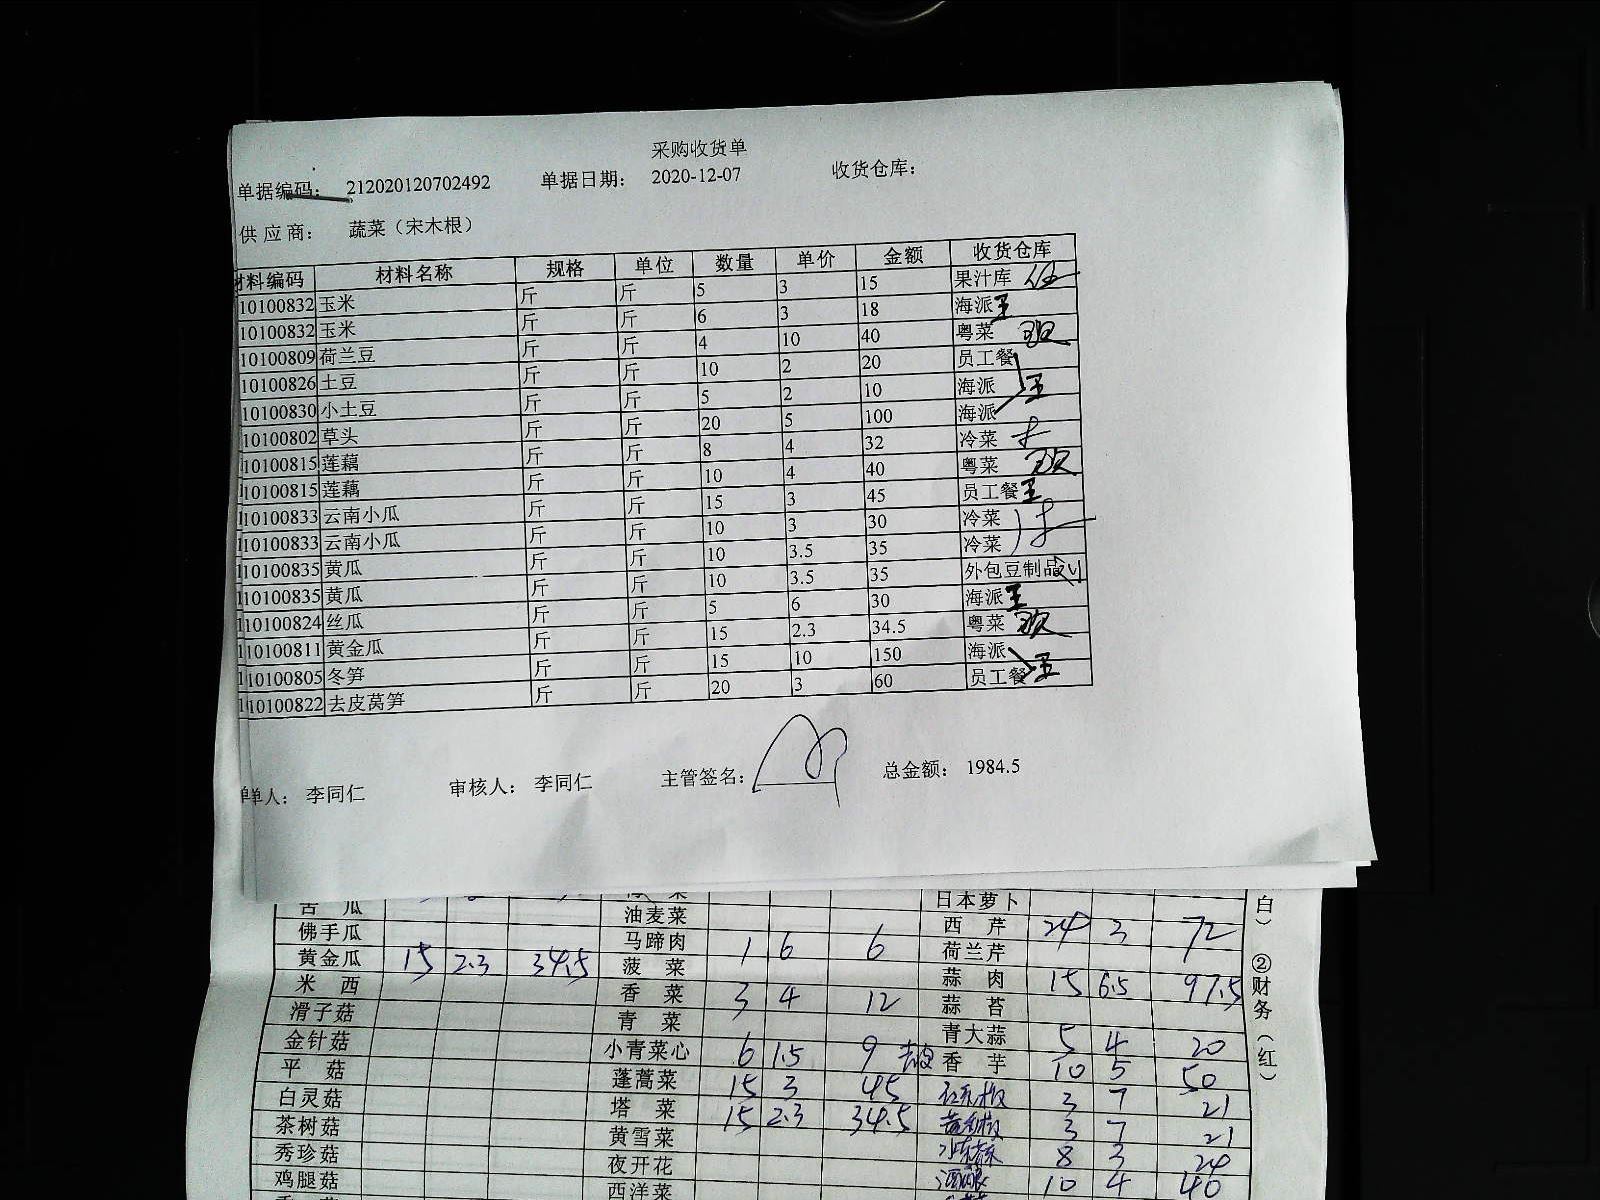 采购收货单
单据编码： 212020120702492 单据日期： 2020-12-07 收货仓库：
供 应 商： 蔬菜（宋木根）
材料编码 材料名称 规格 单位 数量 单价 金额 收货仓库
10100832 玉米 斤 斤 5 3 15 果汁库
10100832 玉米 斤 斤 6 3 18 海派 王
10100809 荷兰豆 斤 斤 4 10 40 粤菜
10100826 土豆 斤 斤 10 2 20 员工餐
10100830 小土豆 斤 斤 5 2 10 海派 王
10100802 草头 斤 斤 20 5 100 海派
10100815 莲藕 斤 斤 8 4 32 冷菜
10100815 莲藕 斤 斤 10 4 40 粤菜
10100833 云南小瓜 斤 斤 15 3 45 员工餐 王
10100833 云南小瓜 斤 斤 10 3 30 冷菜
10100835 黄瓜 斤 斤 10 3.5 35 冷菜
10100835 黄瓜 斤 斤 10 3.5 35 外包豆制品
10100824 丝瓜 斤 斤 5 6 30 海派 王
10100811 黄金瓜 斤 斤 15 2.3 34.5 粤菜
10100805 冬笋 斤 斤 15 10 150 海派
10100822 去皮莴笋 斤 斤 20 3 60 员工餐 王
单人： 李同仁 审核人： 李同仁 主管签名： 总金额： 1984.5
苦 瓜 日本萝卜
佛手瓜 油麦菜 西 芹 24 3 72
黄金瓜 15 2.3 34.5 马蹄肉 1 6 6 荷兰芹
米 西 菠 菜 蒜 肉 15 6.5 97.5
滑子菇 香 菜 3 4 12 蒜 苔
金针菇 青 菜 青大蒜 5 4 20
平 菇 小青菜心 6 1.5 9 去皮 香 芋 10 5 50
白灵菇 蓬蒿菜 15 3 45 红彩椒 3 7 21
茶树菇 塔 菜 15 2.3 34.5 黄彩椒 3 7 21
秀珍菇 黄雪菜 8 3 24
鸡腿菇 夜开花 酒酿 10 4 40
西洋菜
白） ②财务（红）